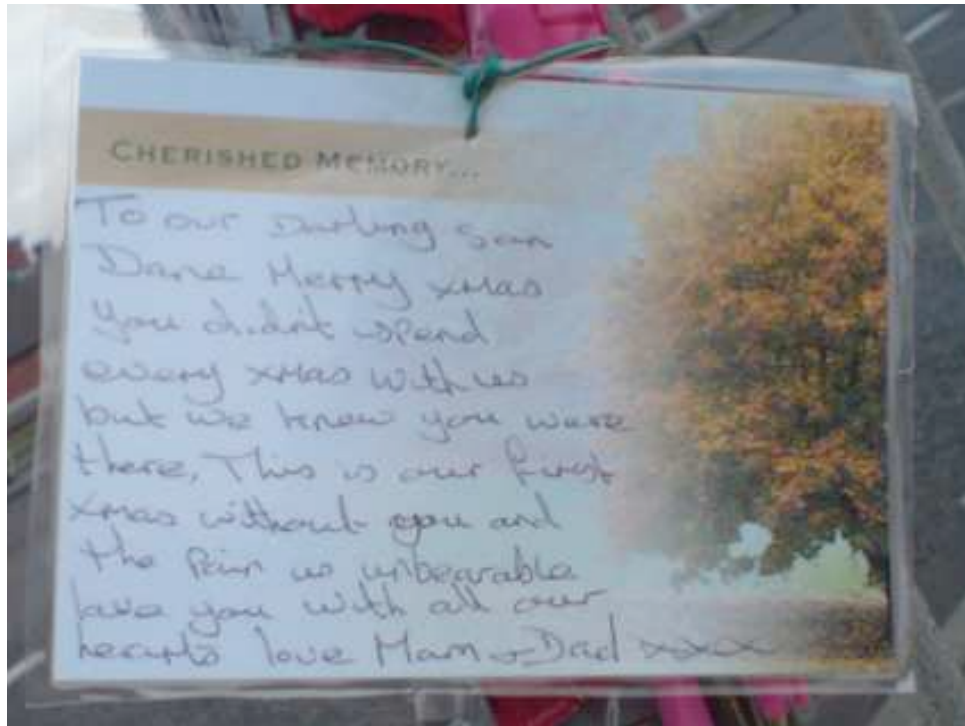 CHERISHED MEMORY...
To our Darling Son
Dane Merry xmas
you didn't spend
every xmas with us
but we knew you were
there, This is our first
xmas without you and
the Pain is unbearable
love you with all our
hearts love Mam + Dad xxxx